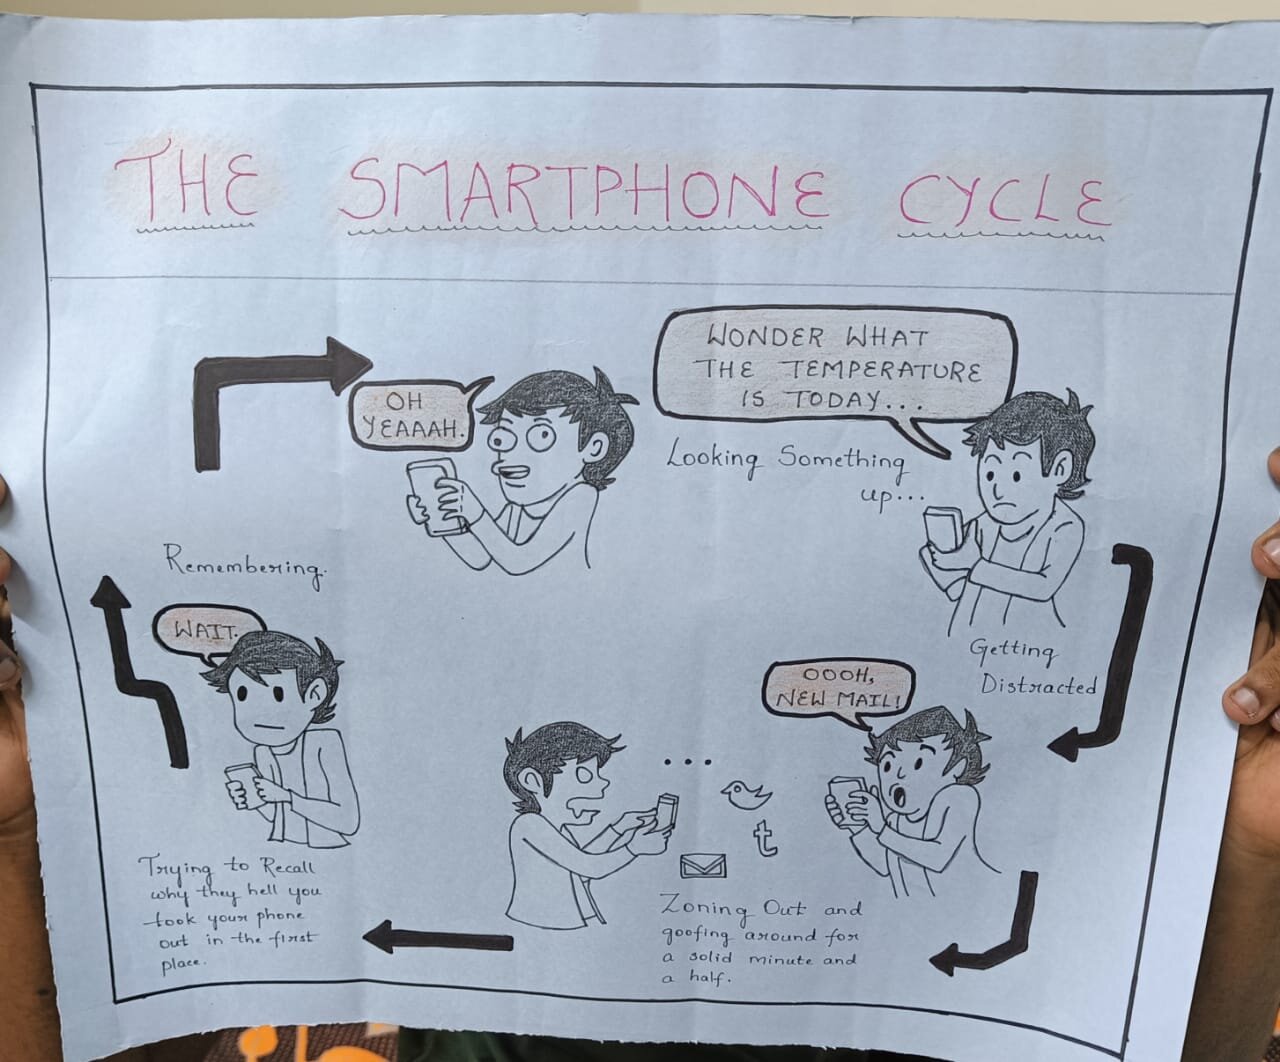 THE SMARTPHONE CYCLE
WONDER WHAT
THE TEMPERATURE
IS TODAY...
Looking Something
up...
Getting
Distracted
OOOH,
NEW MAIL!
...
t
Zoning Out and
goofing around for
a solid minute and
a half.
Trying to Recall
why they hell you
took your phone
out in the first
place.
WAIT.
Remembering.
OH
YEAAAH.